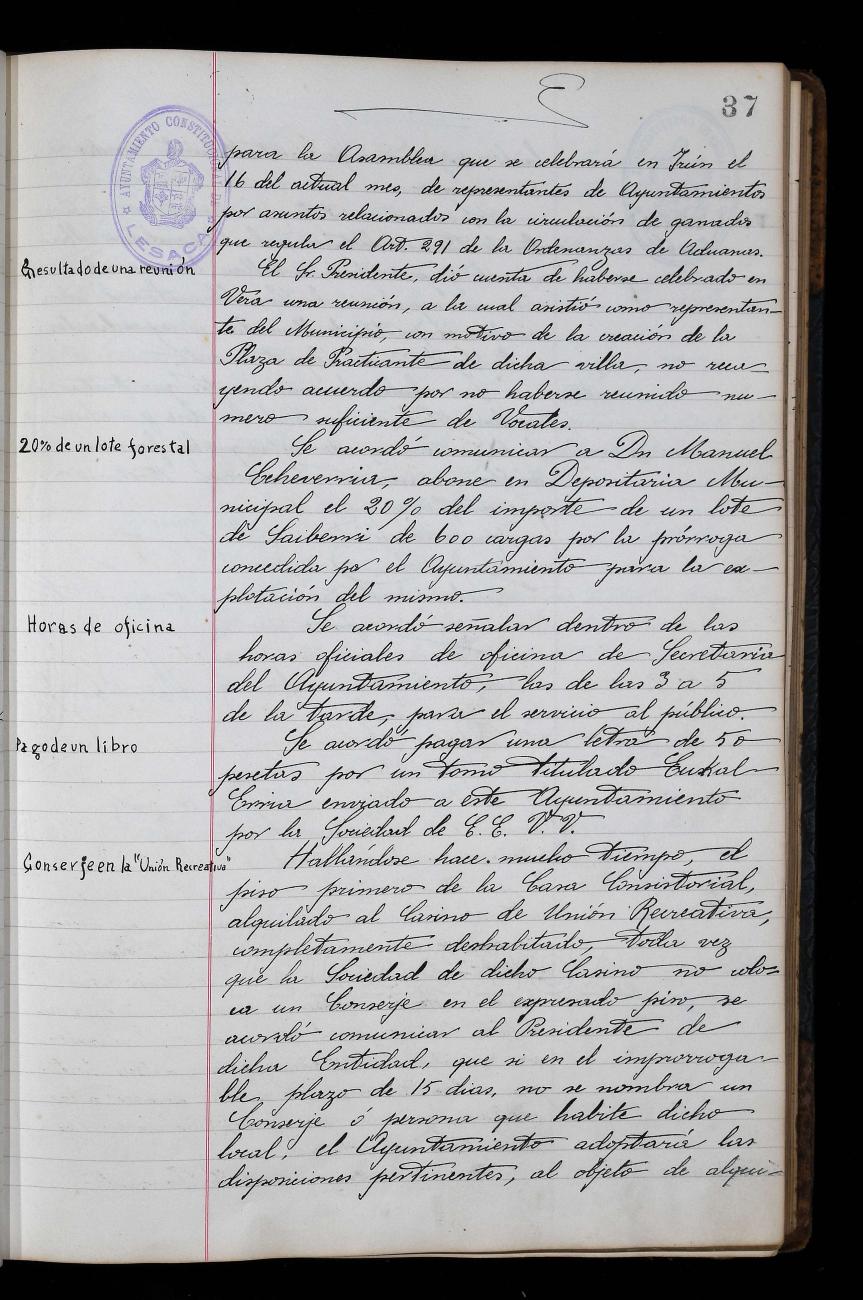 37
AYUNTAMIENTO CONSTITUCIONAL DE
LESACA
para la Asamblea que se celebrará en Irún el
16 del actual mes, de representantes de Ayuntamientos
por asuntos relacionados con la circulación de ganados
que regula el Art. 291 de la Ordenanzas de Aduanas.
Resultado de una reunión
El Sr. Presidente, dió cuenta de haberse celebrado en
Vera una reunión, a la cual asistió como representan-
te del Municipio, con motivo de la creación de la
Plaza de Practicante de dicha villa, no reca-
yendo acuerdo por no haberse reunido nu-
mero suficiente de Vocales.
20% de un lote forestal
Se acordó comunicar a Dn Manuel
Echeverria, abone en Depositaria Mu-
nicipal el 20% del importe de un lote
de Saiberri de 600 cargas por la prórroga
concedida por el Ayuntamiento para la ex-
plotación del mismo.
Horas de oficina
Se acordó señalar dentro de las
horas oficiales de oficina de Secretaria
del Ayuntamiento, las de las 3 a 5
de la tarde, para el servicio al público.
Pago de un libro
Se acordó pagar una letra de 50
pesetas por un tomo titulado Euskal-
Erria enviado a este Ayuntamiento
por la Sociedad de E.E. V.V.
Conserje en la "Unión Recreativa"
Hallándose hace mucho tiempo, el
piso primero de la Casa Consistorial,
alquilado al Casino de Unión Recreativa,
completamente deshabitado, toda vez
que la Sociedad de dicho Casino no colo-
ca un Conserje en el expresado piso, se
acordó comunicar al Presidente de
dicha Entidad, que si en el improrroga-
ble plazo de 15 dias, no se nombra un
Conserje ó persona que habite dicho
local, el Ayuntamiento adoptará las
disposiciones pertinentes, al objeto de alqui-